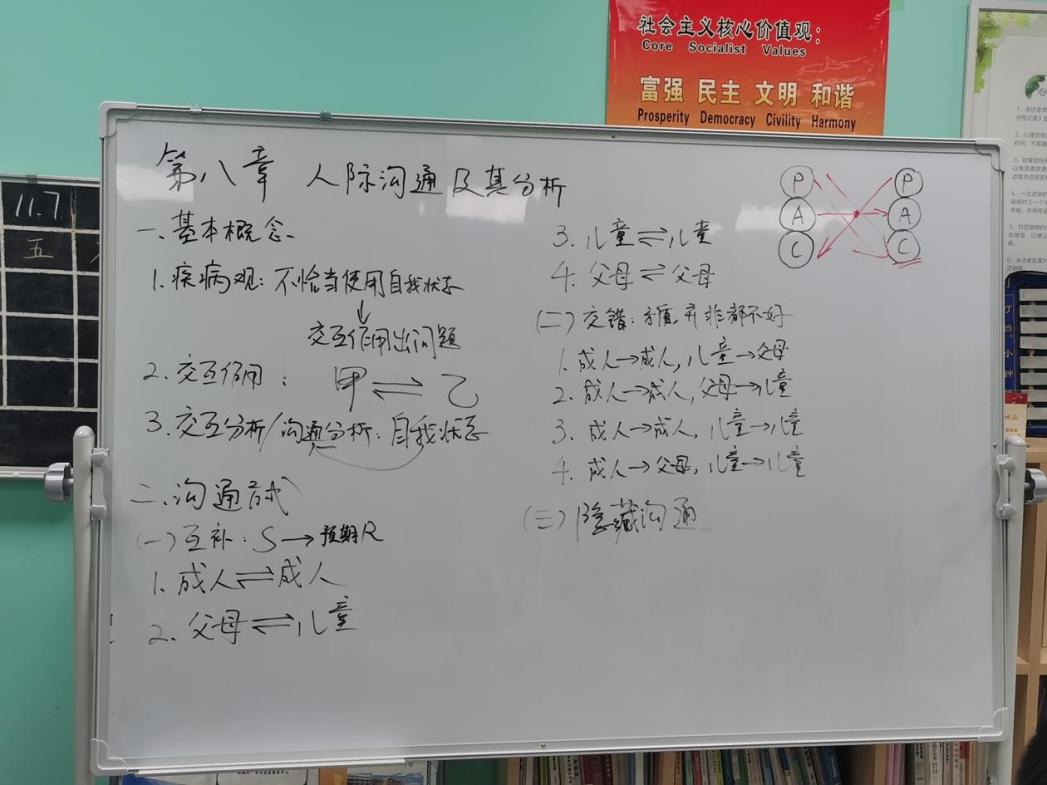 社会主义核心价值观:
Core Socialist Values
富强 民主 文明 和谐
Prosperity Democracy Civility Harmony
11.7
五
第八章 人际沟通及其分析
一、基本概念
1.疾病观:不恰当使用自我状态
↓
交互作用出问题
2.交互作用: 甲⇌乙
3.交互分析/沟通分析:自我状态
二、沟通方式
(一)互补:S→预期R
1.成人⇌成人
2.父母⇌儿童
3.儿童⇌儿童
4.父母⇌父母
(二)交错:矛盾,并非都不好
1.成人→成人,儿童→父母
2.成人→成人,父母→儿童
3.成人→成人,儿童→儿童
4.成人→父母,儿童→儿童
(三)隐藏沟通
P P
A A
C C